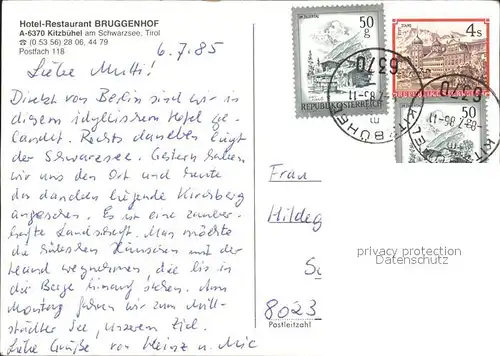 Hotel-Restaurant BRUGGENHOF
A-6370 Kitzbühel am Schwarzsee, Tirol
☎ (0 53 56) 28 06, 44 79
Postfach 118
6.7.85
Liebe Mutti!
Direkt von Berlin sind wir in
diesem idyllischen Hotel ge-
landet. Rechts daneben liegt
der Schwarzsee. Gestern haben
wir uns den Ort und heute
das daneben liegende Kirchberg
angesehen. Es ist eine zauber-
hafte Landschaft. Man möchte
die hübschen Häuschen mit der
Hand wegnehmen, die bis in
die Berge hinauf stehen. Am
Montag fahren wir zum Mill-
städter See, unserem Ziel.
Liebe Grüße von Heinz u.
50
g
REPUBLIK ÖSTERREICH
4s
REPUBLIK ÖSTERREICH
50
6370
KITZBÜHEL
Frau
Hildeg
8023
Postleitzahl
privacy protection
Datenschutz